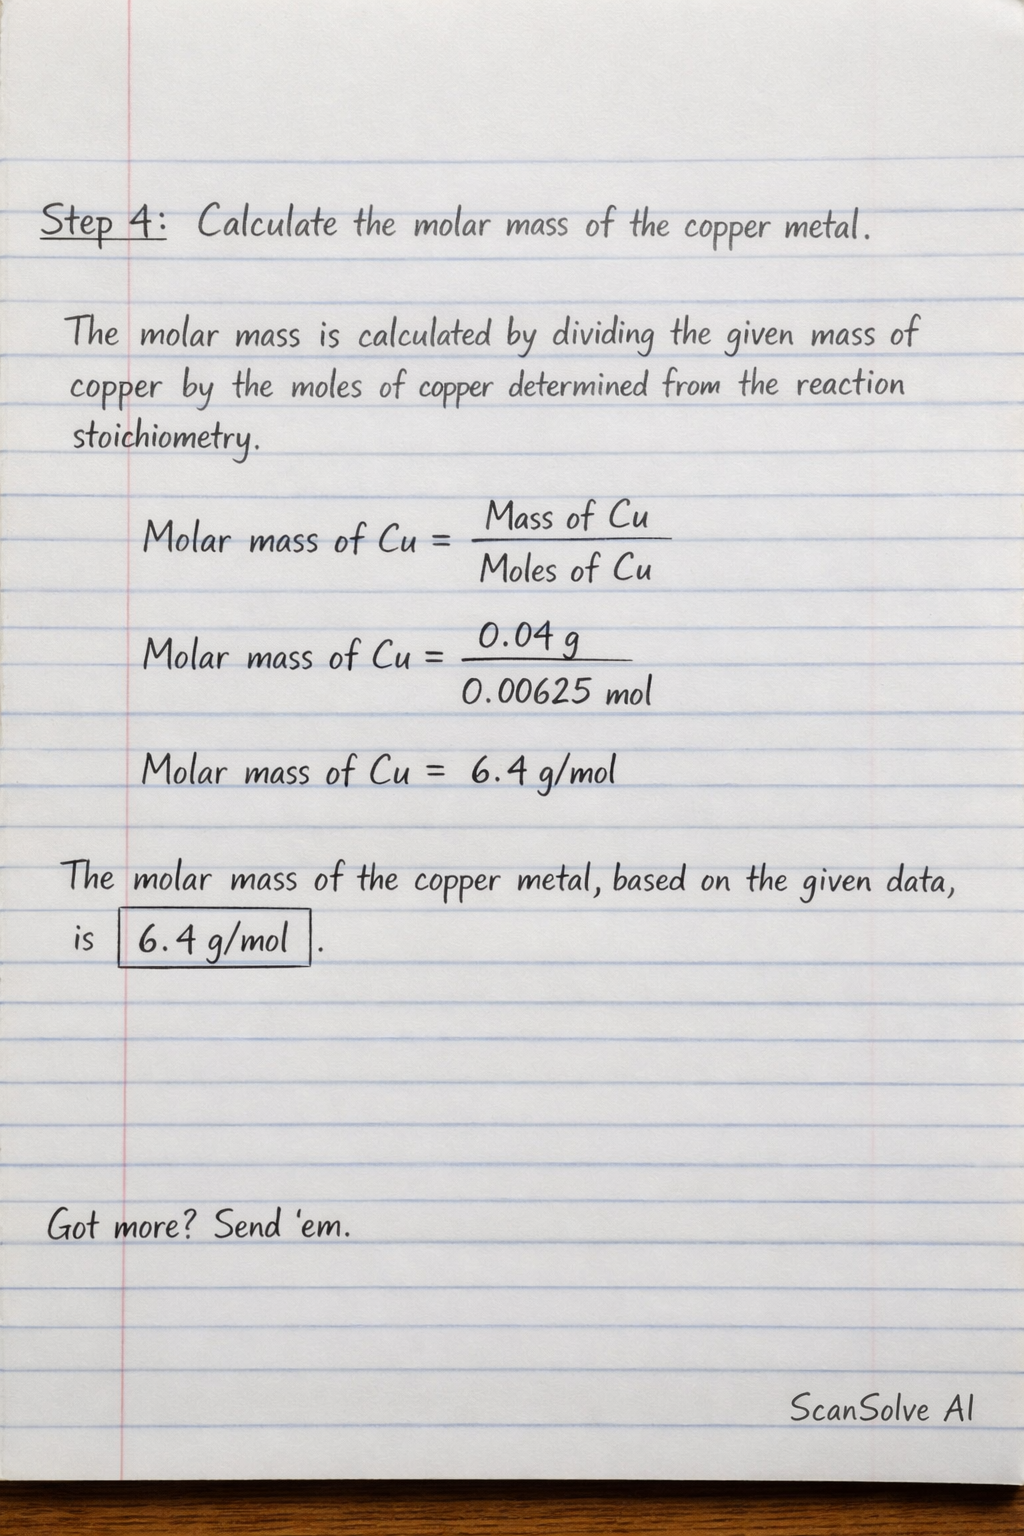 Step 4: Calculate the molar mass of the copper metal.
The molar mass is calculated by dividing the given mass of
copper by the moles of copper determined from the reaction
stoichiometry.
Molar mass of Cu = Mass of Cu / Moles of Cu
Molar mass of Cu = 0.04 g / 0.00625 mol
Molar mass of Cu = 6.4 g/mol
The molar mass of the copper metal, based on the given data,
is 6.4 g/mol.
Got more? Send 'em.
ScanSolve AI